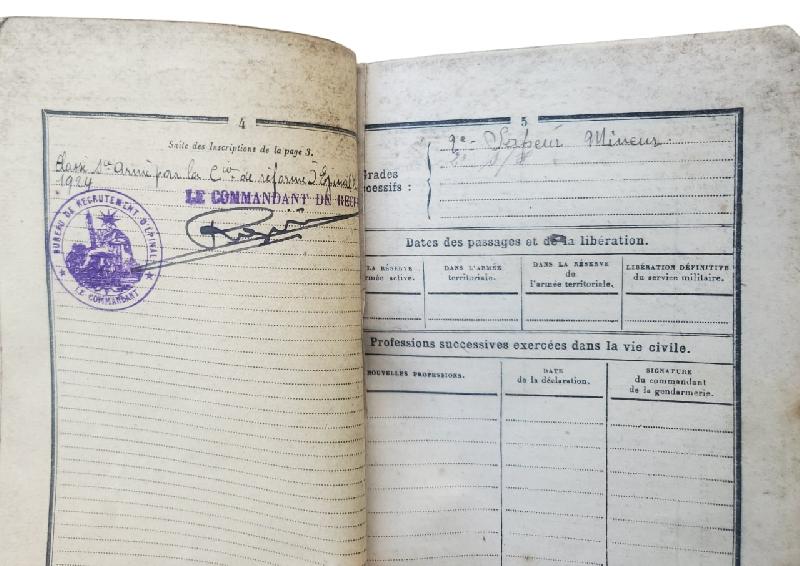 4
Suite des Inscriptions de la page 3.
Classé Sce Armé par la Con de réforme d'Epinal
1924
LE COMMANDANT DE REC
BUREAU DE RECRUTEMENT D'EPINAL
LE COMMANDANT
5
2e Sapeur Mineur
Grades
cessifs :
Dates des passages et de la libération.
LA RÉSERVE
rmée active.
DANS L'ARMÉE
territoriale.
DANS LA RÉSERVE
de
l'armée territoriale.
LIBÉRATION DÉFINITIVE
du service militaire.
Professions successives exercées dans la vie civile.
NOUVELLES PROFESSIONS.
DATE
de la déclaration.
SIGNATURE
du commandant
de la gendarmerie.